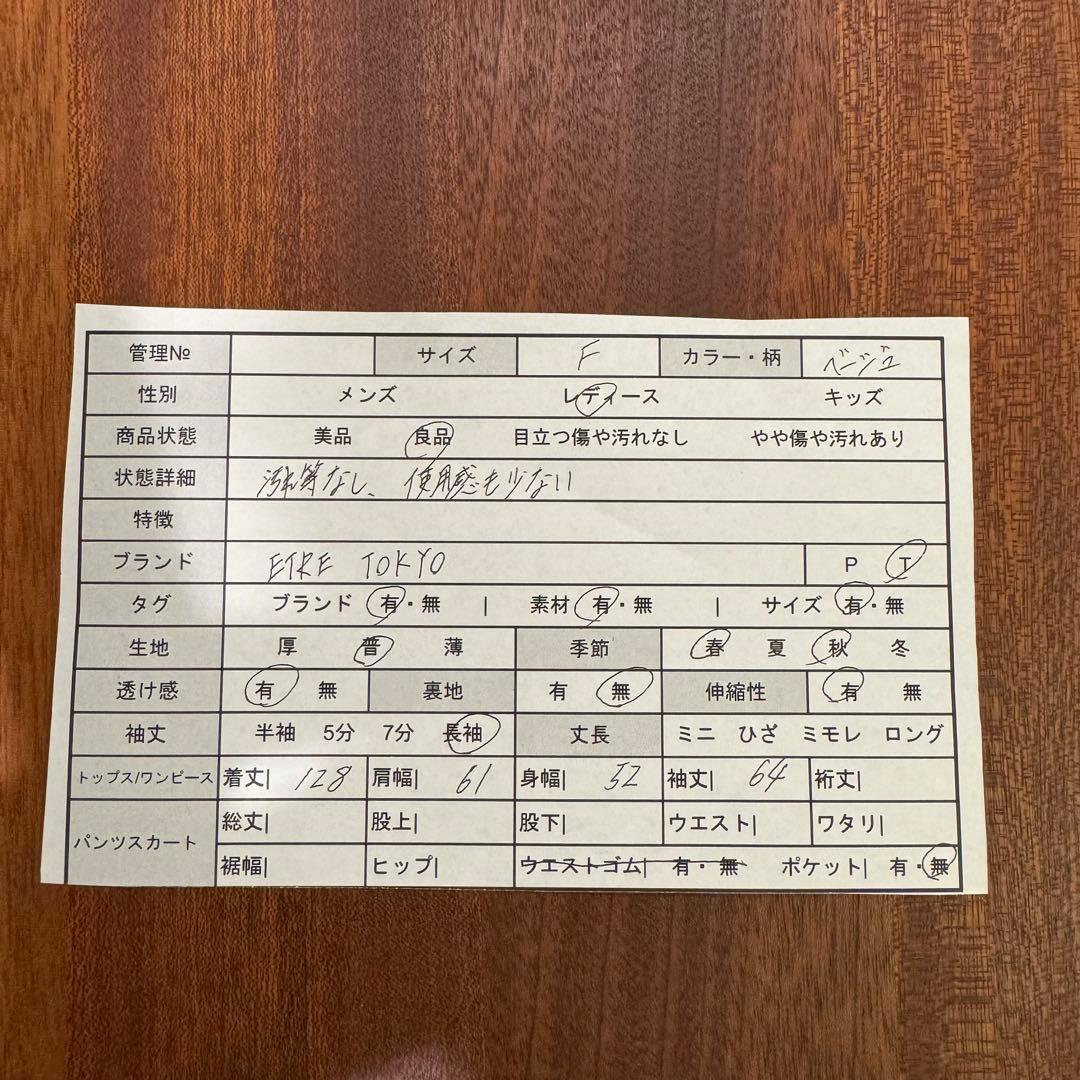 管理№ サイズ F カラー・柄 ベージュ
性別 メンズ レディース キッズ
商品状態 美品 良品 目立つ傷や汚れなし やや傷や汚れあり
状態詳細 汚れ等なし、使用感も少ない
特徴
ブランド ETRE TOKYO P T
タグ ブランド 有・無 | 素材 有・無 | サイズ 有・無
生地 厚 普 薄 季節 春 夏 秋 冬
透け感 有 無 裏地 有 無 伸縮性 有 無
袖丈 半袖 5分 7分 長袖 丈長 ミニ ひざ ミモレ ロング
トップス/ワンピース 着丈| 128 肩幅| 61 身幅| 52 袖丈| 64 裄丈|
パンツスカート 総丈| 股上| 股下| ウエスト| ワタリ|
裾幅| ヒップ| ウエストゴム| 有・無 ポケット| 有・無